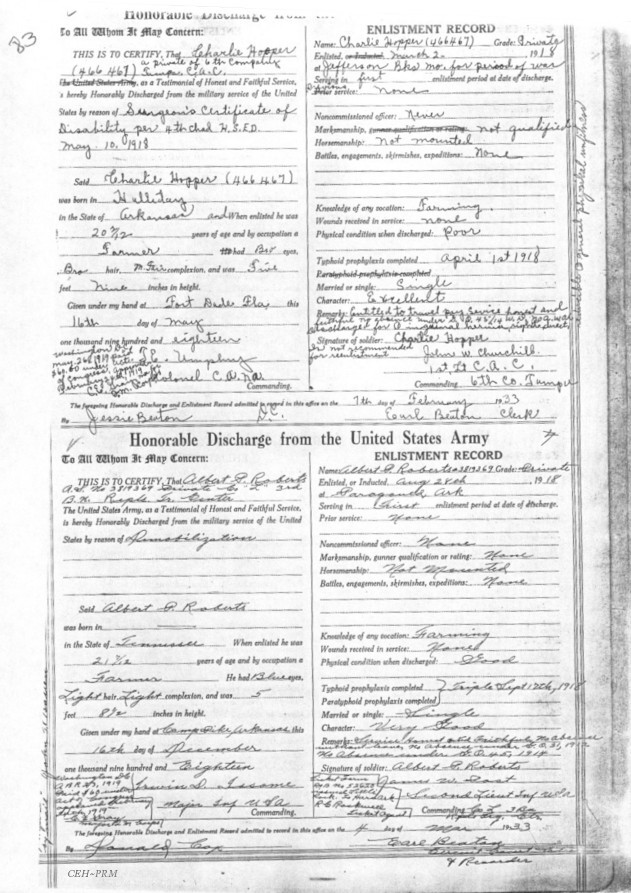 83
Honorable Discharge from
To All Whom It May Concern:
THIS IS TO CERTIFY, That Charlie Hopper
a private of 6th Company
(466 467) Tampa C.A.C.
The United States Army, as a Testimonial of Honest and Faithful Service,
is hereby Honorably Discharged from the military service of the United
States by reason of Surgeon's Certificate of
Disability per 4th
May 10, 1918
Said Charlie Hopper (466 467)
was born in Halliday
in the State of Arkansas and When enlisted he was
20 7/12 years of age and by occupation a
Farmer had Bro eyes,
Bro hair, M. Fair complexion, and was Five
feet Nine inches in height.
Given under my hand at Fort Dade Fla. this
16th day of May
one thousand nine hundred and eighteen
Colonel C.A.N.A.
Commanding.
ENLISTMENT RECORD
Name: Charlie Hopper (466467) Grade: Private
Enlisted, or Inducted March 2 1918
at Jefferson Bks mo. for period of war
Serving in first enlistment period at date of discharge.
Previous service: None
Noncommissioned officer: Never
Marksmanship, gunner qualification or rating: not qualified
Horsemanship: Not mounted
Battles, engagements, skirmishes, expeditions: None
Knowledge of any vocation: Farming
Wounds received in service: none
Physical condition when discharged: Poor
Typhoid prophylaxis completed April 1st 1918
Paratyphoid prophylaxis completed
Married or single: Single
Character: Excellent
Remarks: Entitled to travel pay Service honest and
faithful no absence under
discharged for inguinal hernia right
Signature of soldier: Charlie Hopper
or not recommended
for reenlistment
John W. Churchill
1st Lt C.A.C.
Commanding 6th Co. Tampa
general physical
The foregoing Honorable Discharge and Enlistment Record admitted to record in this office on the 7th day of February 1933
By Jessie Beaton D.C. Earl Beaton Clerk
Honorable Discharge from the United States Army
To All Whom It May Concern:
THIS IS TO CERTIFY, That Albert P. Roberts
A.S. No 3819369 Private Co. L 3rd
The United States Army, as a Testimonial of Honest and Faithful Service,
is hereby Honorably Discharged from the military service of the United
States by reason of Demobilization
Said Albert P. Roberts
was born in
in the State of Tennessee When enlisted he was
21 7/12 years of age and by occupation a
Farmer He had Blue eyes,
Light hair, Light complexion, and was 5
feet 8 1/2 inches in height.
Given under my hand at Camp Pike Arkansas this
16th day of December
one thousand nine hundred and Eighteen
Major Inf USA
Commanding.
ENLISTMENT RECORD
Name: Albert P. Roberts 3819369 Grade: Private
Enlisted, or Inducted Aug 28th, 1918
at Paragould Ark
Serving in First enlistment period at date of discharge.
Prior service: None
Noncommissioned officer: None
Marksmanship, gunner qualification or rating: None
Horsemanship: Not Mounted
Battles, engagements, skirmishes, expeditions: None
Knowledge of any vocation: Farming
Wounds received in service: None
Physical condition when discharged: Good
Typhoid prophylaxis completed } Triple Sept 17th, 1918
Paratyphoid prophylaxis completed
Married or single: Single
Character: Very Good
Remarks: Service honest and Faithful No Absence
No Absence under
Signature of soldier: Albert P. Roberts
James W.
Second Lieut Inf USA
Commanding
The foregoing Honorable Discharge and Enlistment Record admitted to record in this office on the 4 day of Mar 1933
By
Earl Beaton
& Recorder
CEH-PRM